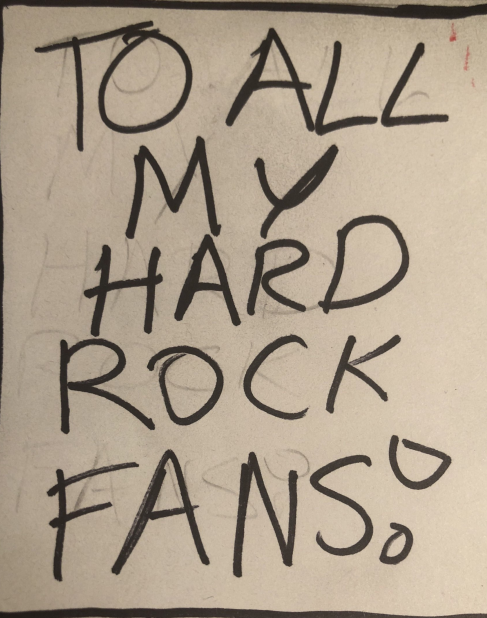 TO ALL
MY
HARD
ROCK
FANS!